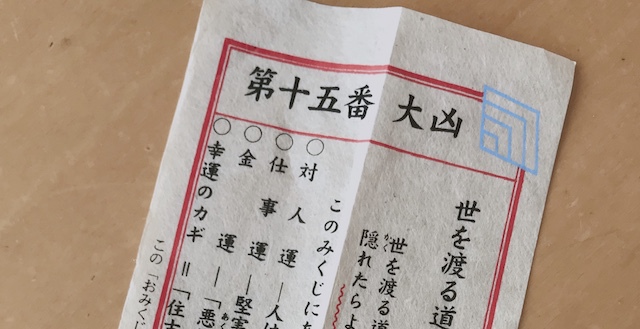 第十五番 大凶
世を渡る道
世を渡る道
隠れたらよ
かく
このみくじにた
○対人運―人は
○仕事運―堅実
○金運―「悪
あく
○幸運のカギ=「住吉
この「おみくじ